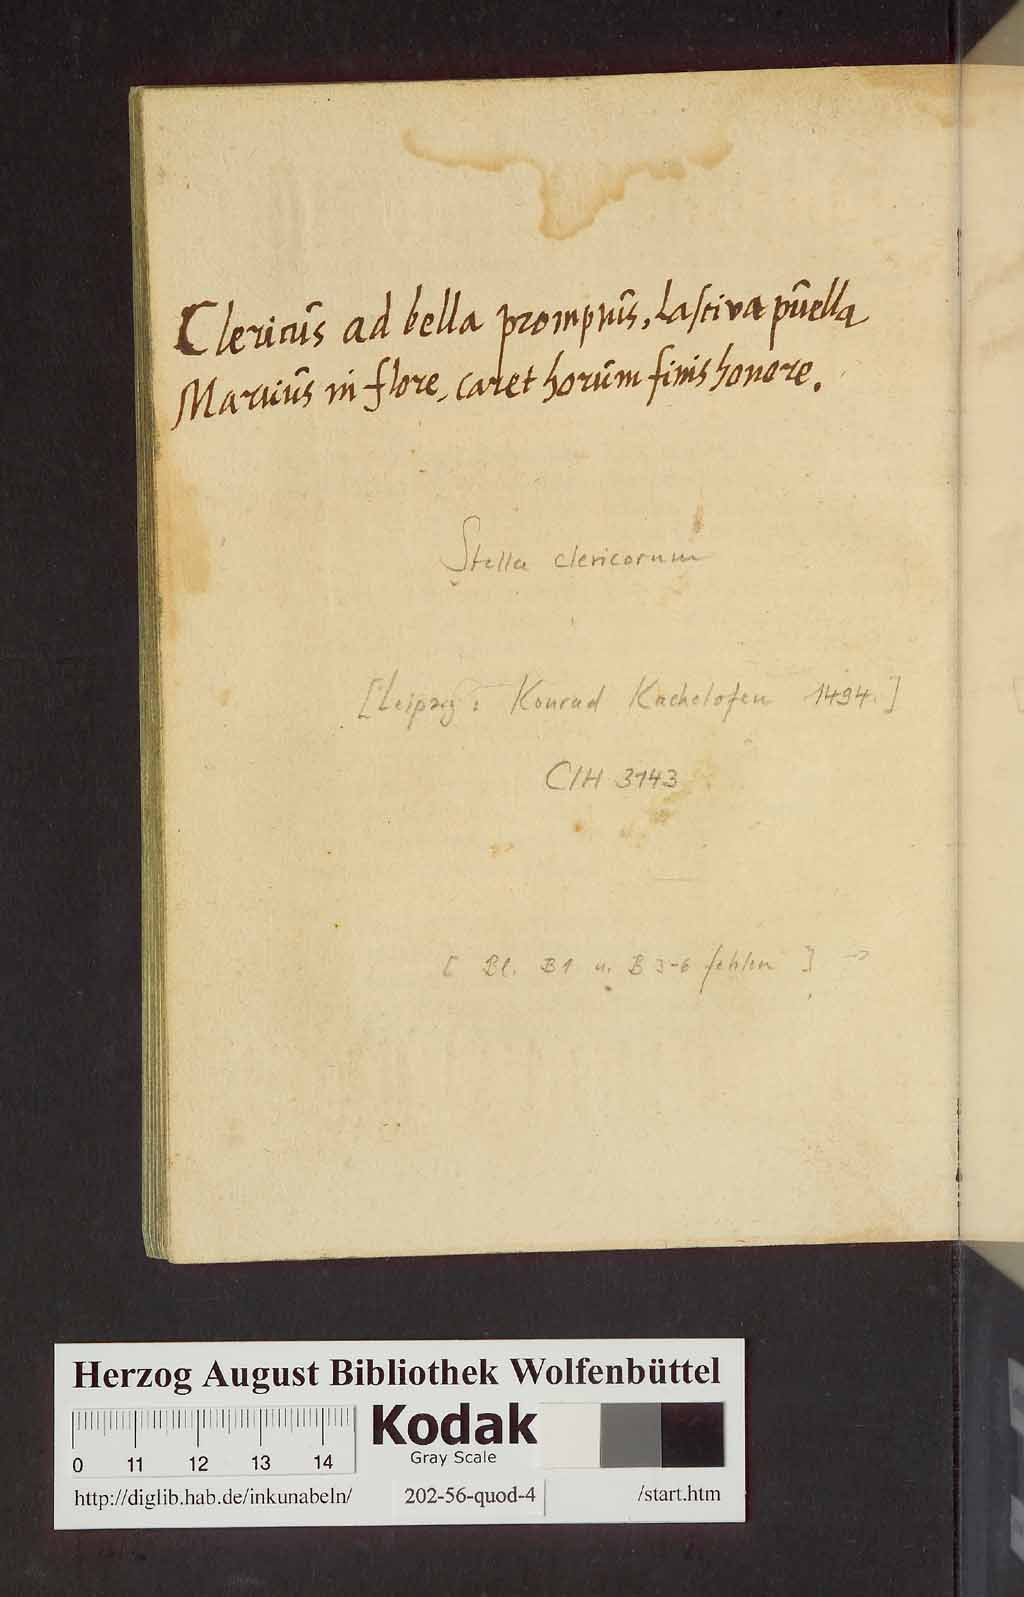 Clericus ad bella promptus, Lasciva puella
Martius in flore, caret horum finis honore.
Stella clericorum
[Leipzig: Konrad Kachelofen 1494.]
CIH 3143
[ Bl. B1 u. B 3-6 fehlen ] →
Herzog August Bibliothek Wolfenbüttel
Kodak
Gray Scale
0 11 12 13 14
http://diglib.hab.de/inkunabeln/ 202-56-quod-4 /start.htm